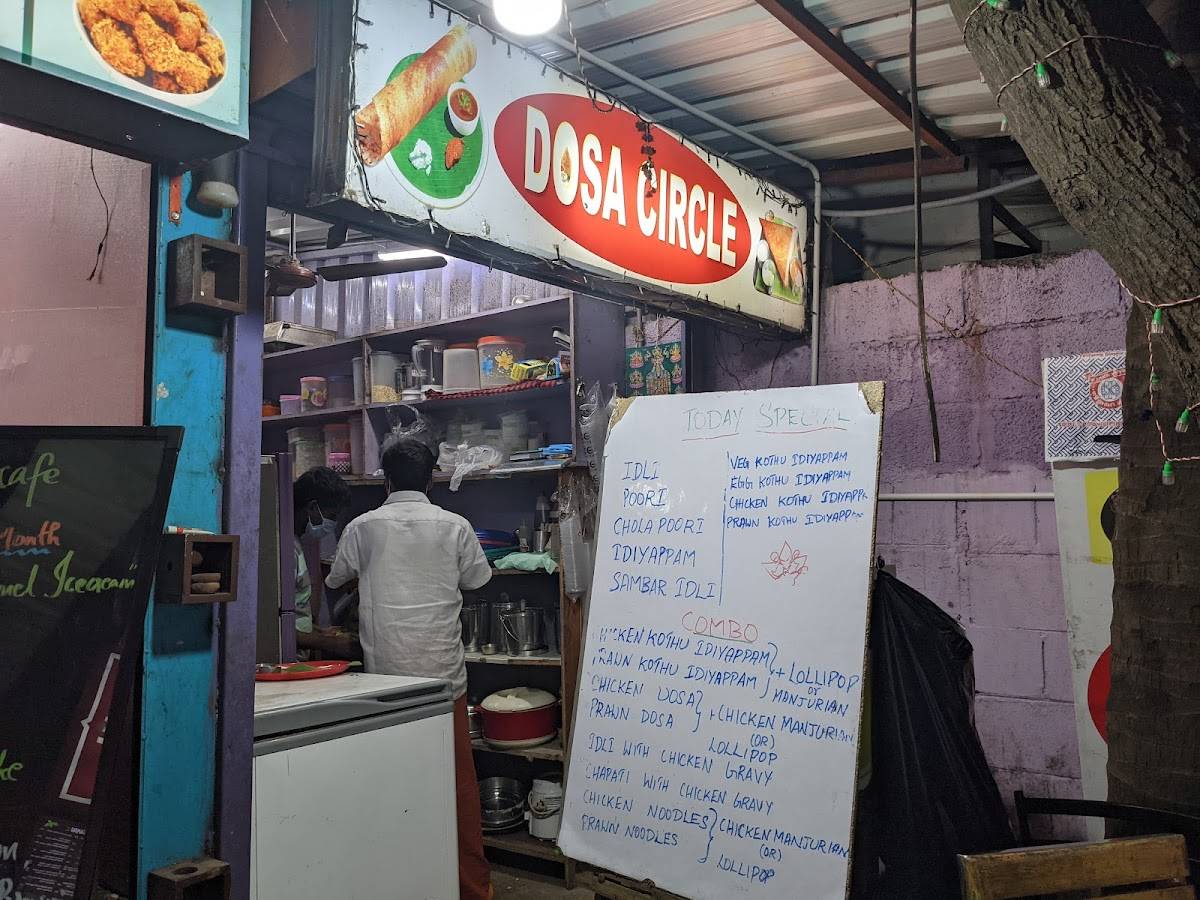 DOSA CIRCLE
cafe
Month
TODAY SPECIAL
IDLI
POORI
CHOLA POORI
IDIYAPPAM
SAMBAR IDLI
VEG KOTHU IDIYAPPAM
EGG KOTHU IDIYAPPAM
CHICKEN KOTHU IDIYAPPA
PRAWN KOTHU IDIYAPPAM
COMBO
CHICKEN KOTHU IDIYAPPAM
PRAWN KOTHU IDIYAPPAM
+ LOLLIPOP
or
MANJURIAN
CHICKEN DOSA
PRAWN DOSA
+ CHICKEN MANJURIAN
(OR)
LOLLIPOP
IDLI WITH CHICKEN GRAVY
CHAPATI WITH CHICKEN GRAVY
CHICKEN NOODLES
PRAWN NOODLES
CHICKEN MANJURIAN
(OR)
LOLLIPOP